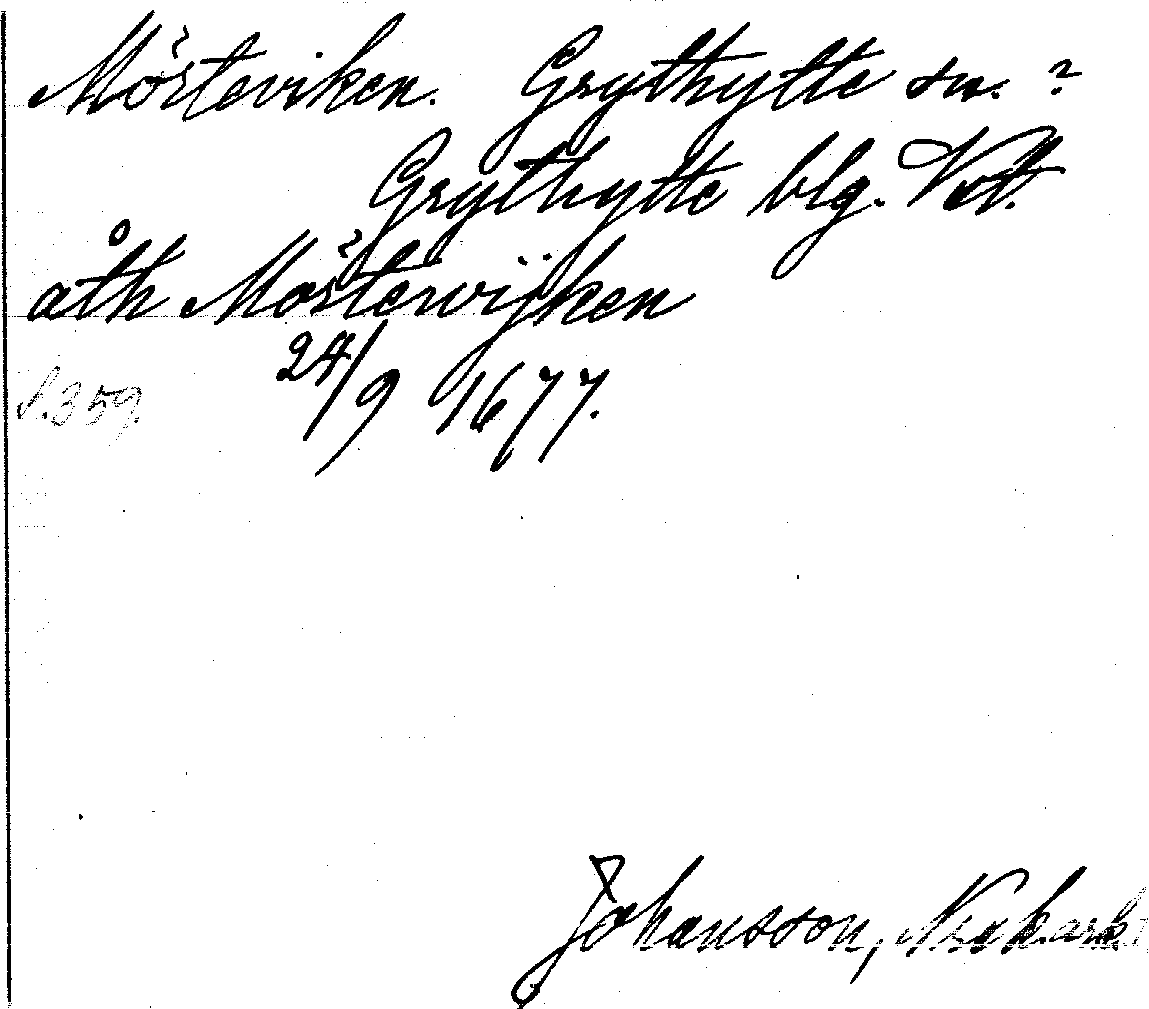 Mörteviken. Grythytte sn. ?
Grythytte blg. Vstl.
åth Mörtewijken
24/9 1677.
S. 359.
Johansson, Noraskog ark.